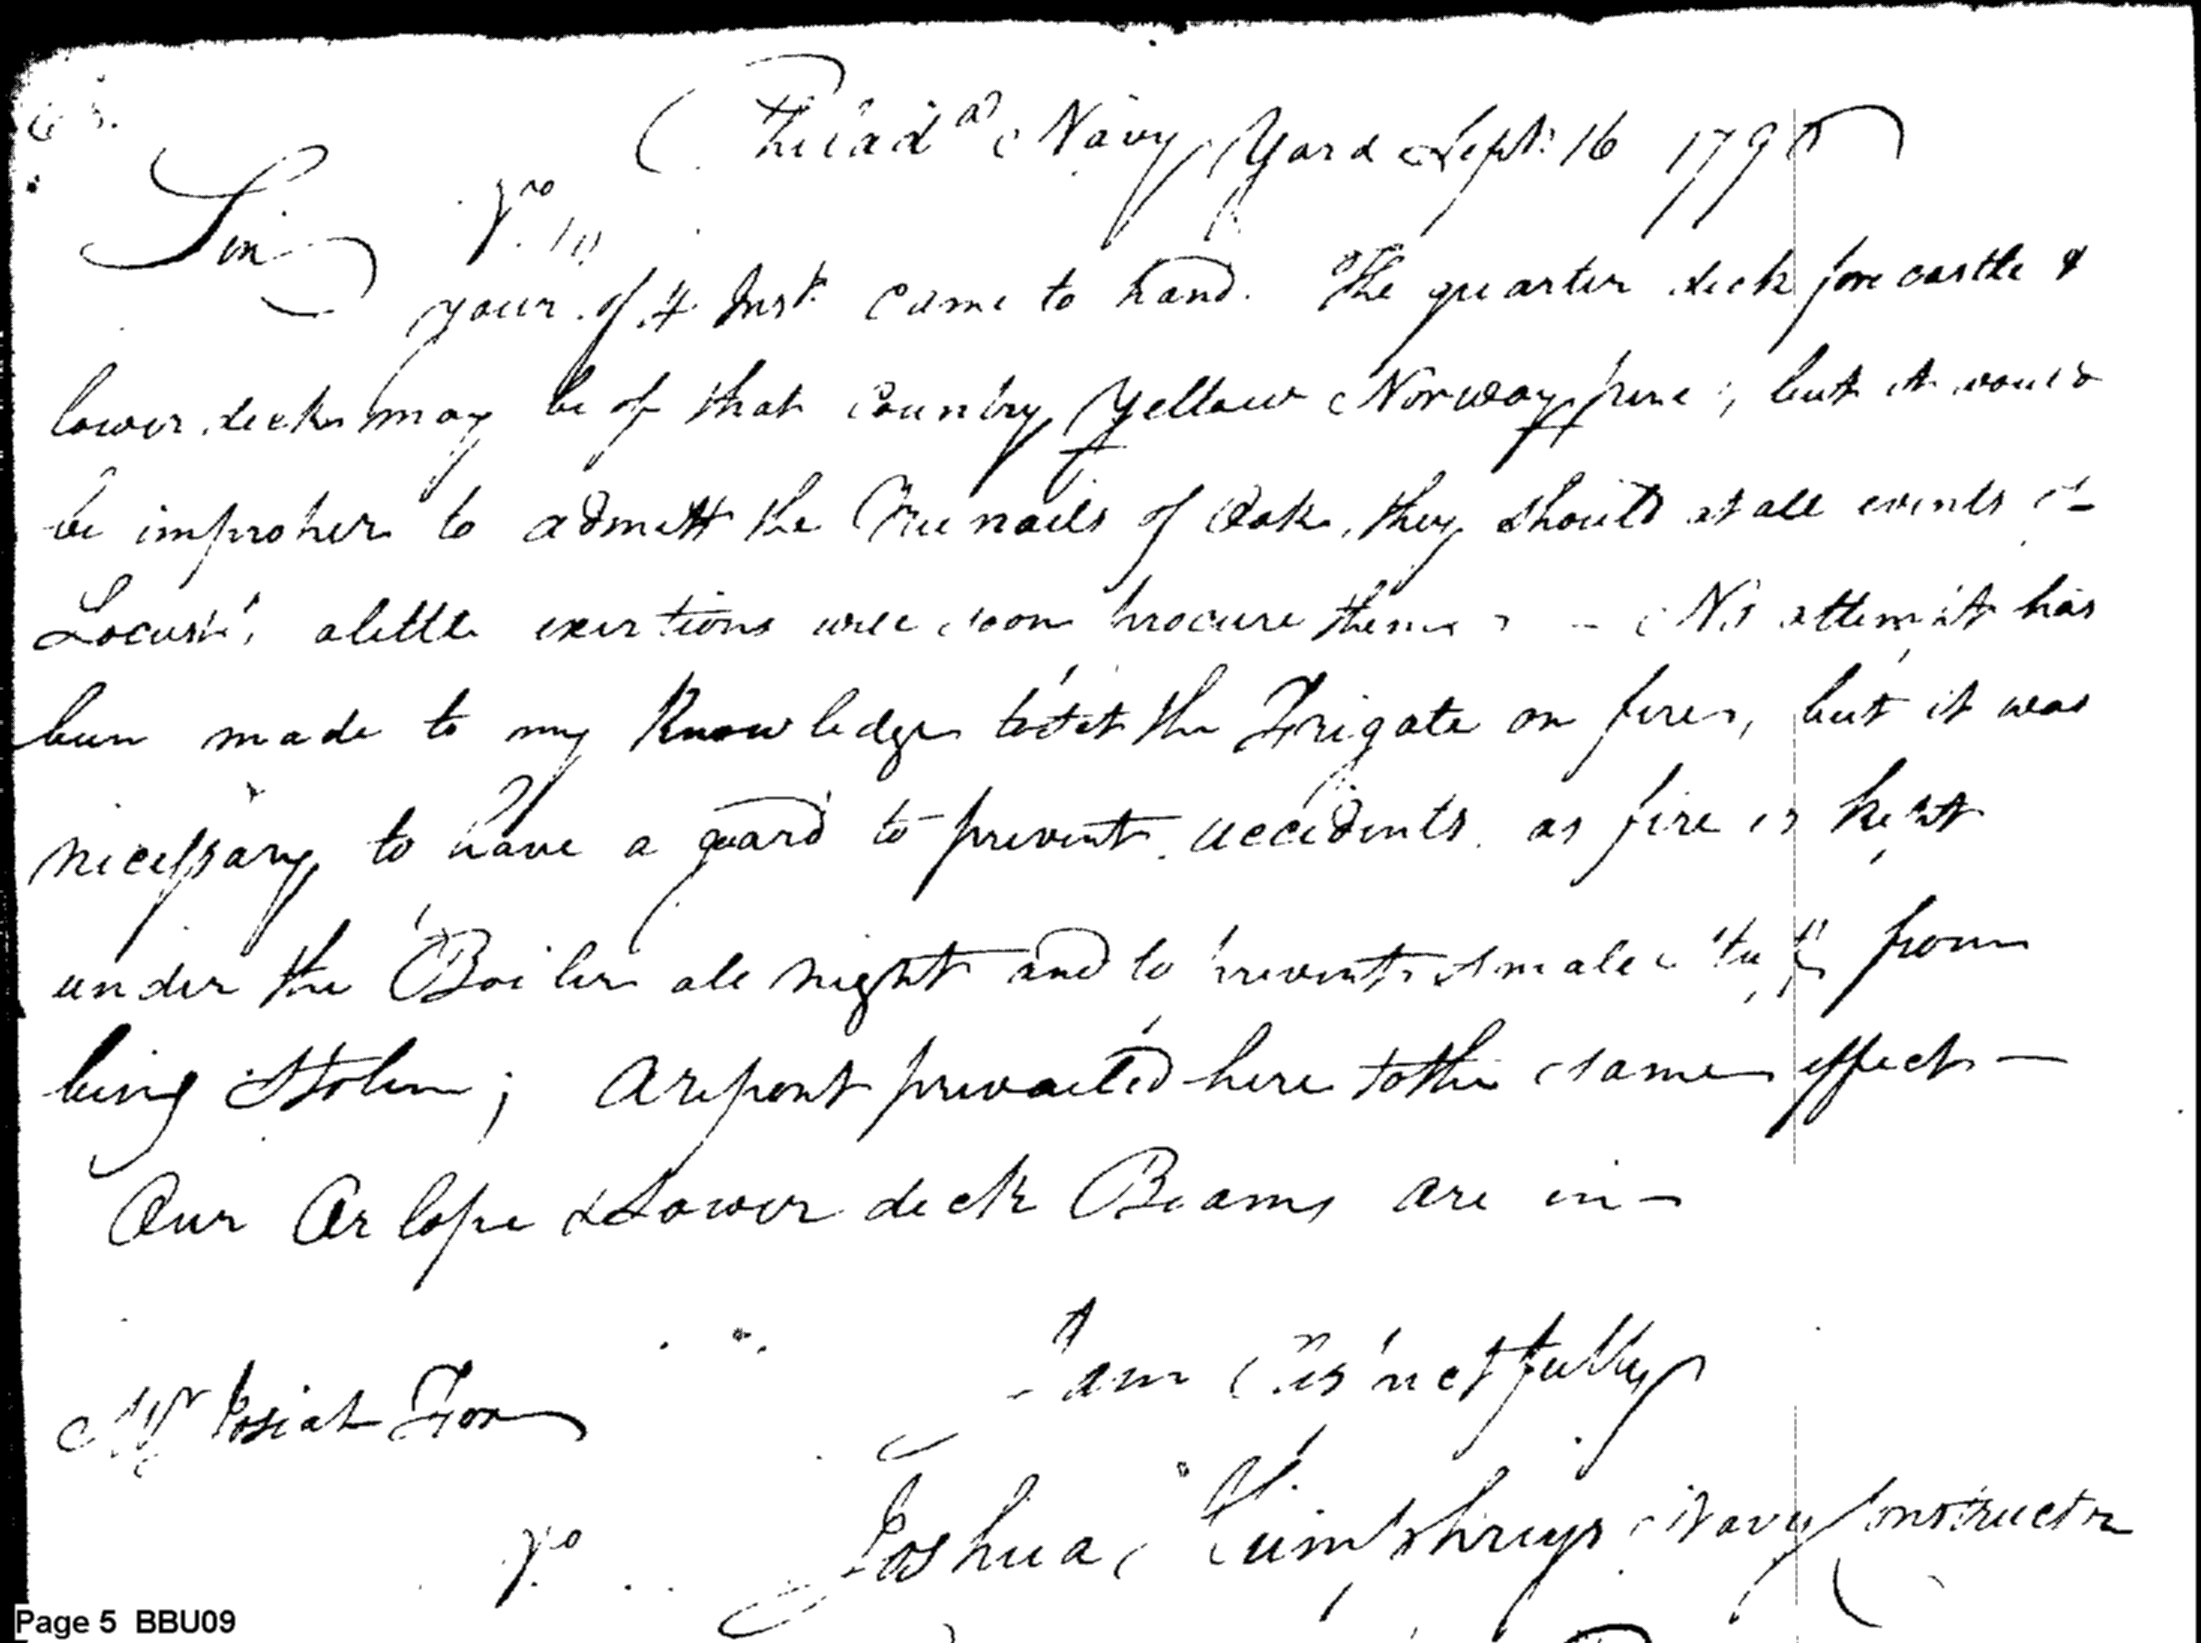 Philad.a Navy Yard Sept. 16 179
Sir
your of 4 Inst. came to hand. The quarter deck fore castle &
lower decks may be of that Country Yellow Norway pine, but it would
be improper to admitt the Tree nails of Oak, they should at all events
Locust, a little exertions will soon procure them - No attempt has
been made to my Knowledge to set the Frigate on fire, but it was
necessary to have a guard to prevent accidents as fire is kept
under the Boiler all night and to prevent small from
being Stolen; A report prevailed here to the same effect —
Our Orlope & Lower deck Beams are in -
I am respectfully
Mr Josiah Fox
Joshua Humphreys Navy Constructr
Page 5 BBU09